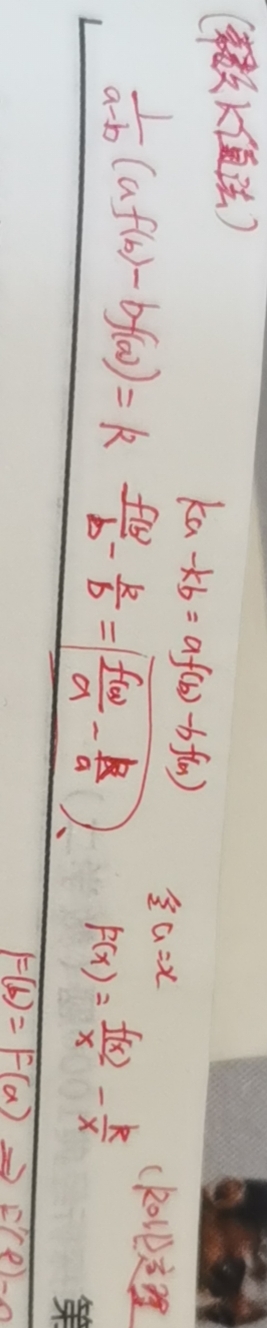 (常数K值法)
ka - kb = af(b) - bf(a)
令a=x
(Roll定理
\frac{1}{a-b}(af(b) - bf(a)) = k
\frac{f(b)}{b} - \frac{k}{b} = \frac{f(a)}{a} - \frac{k}{a}
F(x) = \frac{f(x)}{x} - \frac{k}{x}
F(b) = F(a) ⇒ F'(ξ)=0
第